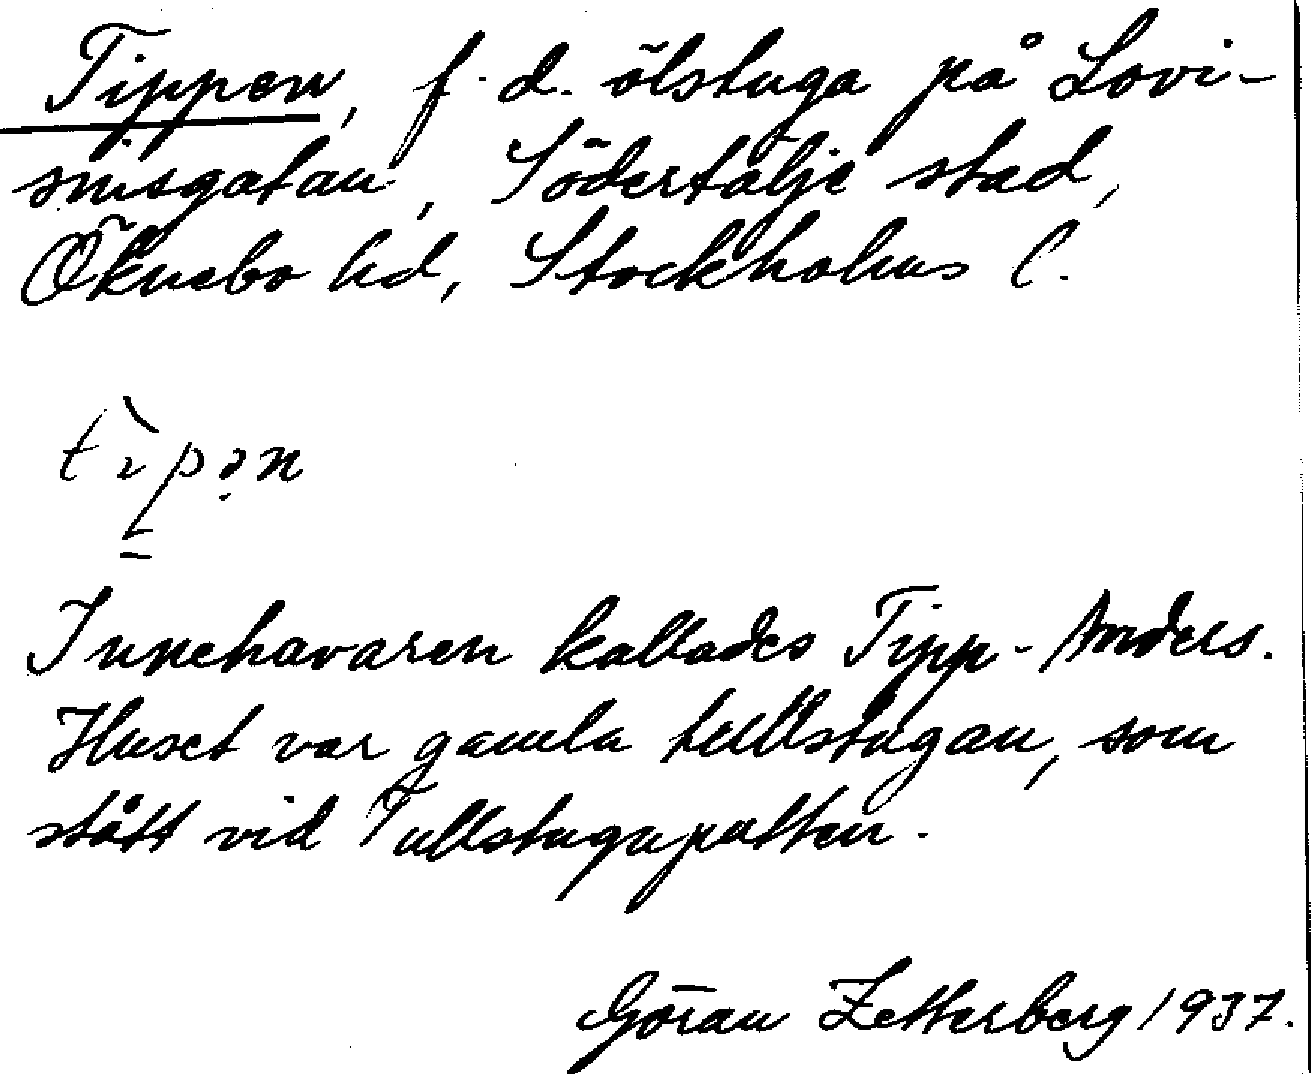 Tippen, f. d. ölstuga på Lovi-
snisgatan, Södertälje stad,
Öknebo hd, Stockholms l.
tìpən
Innehavaren kallades Tipp-Anders.
Huset var gamla tullstugan, som
stått vid Tullstugupatten.
Göran Zetterberg 1937.